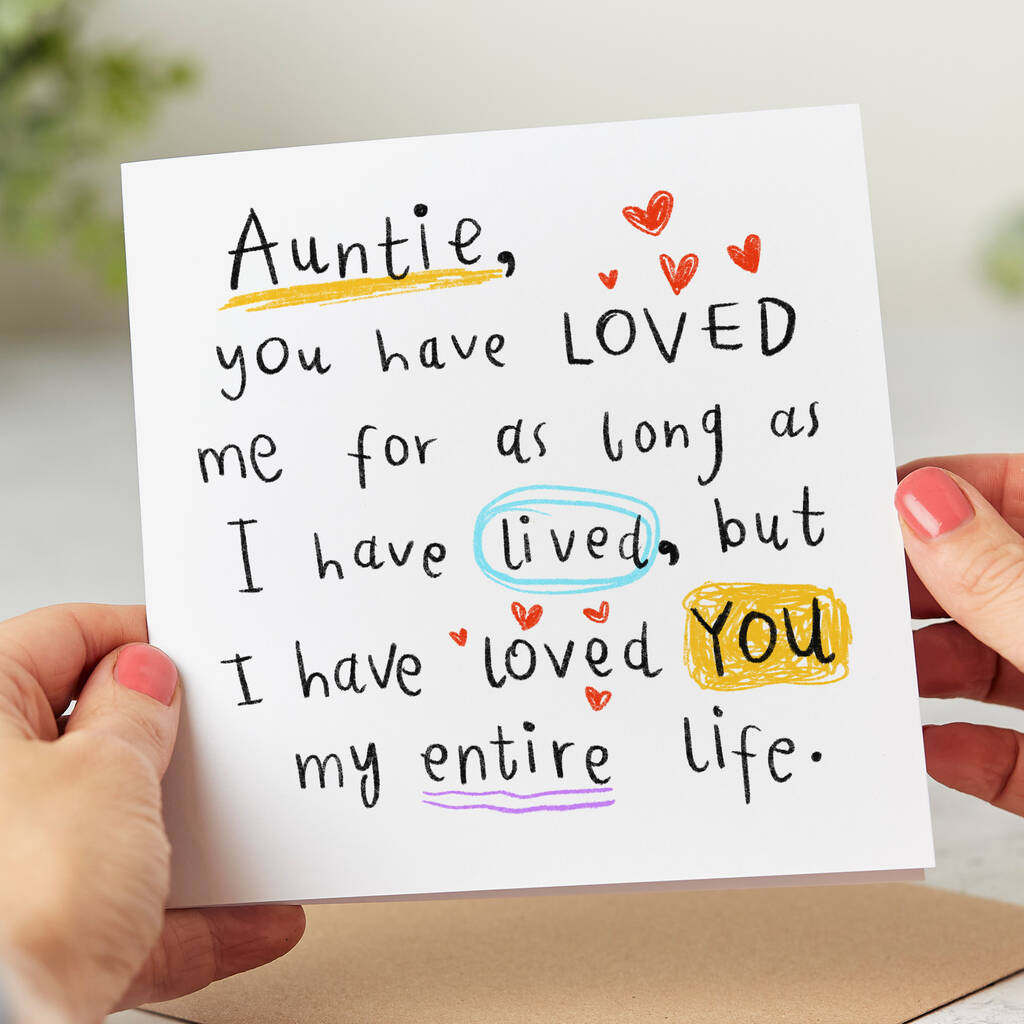 Auntie,
you have LOVED
me for as long as
I have lived, but
I have loved YOU
my entire life.